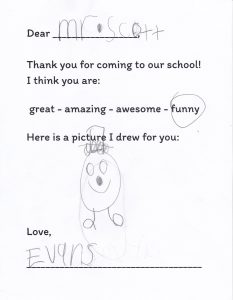 Dear mr. scott
Thank you for coming to our school!
I think you are:
great - amazing - awesome - funny
Here is a picture I drew for you:
Love,
Evans